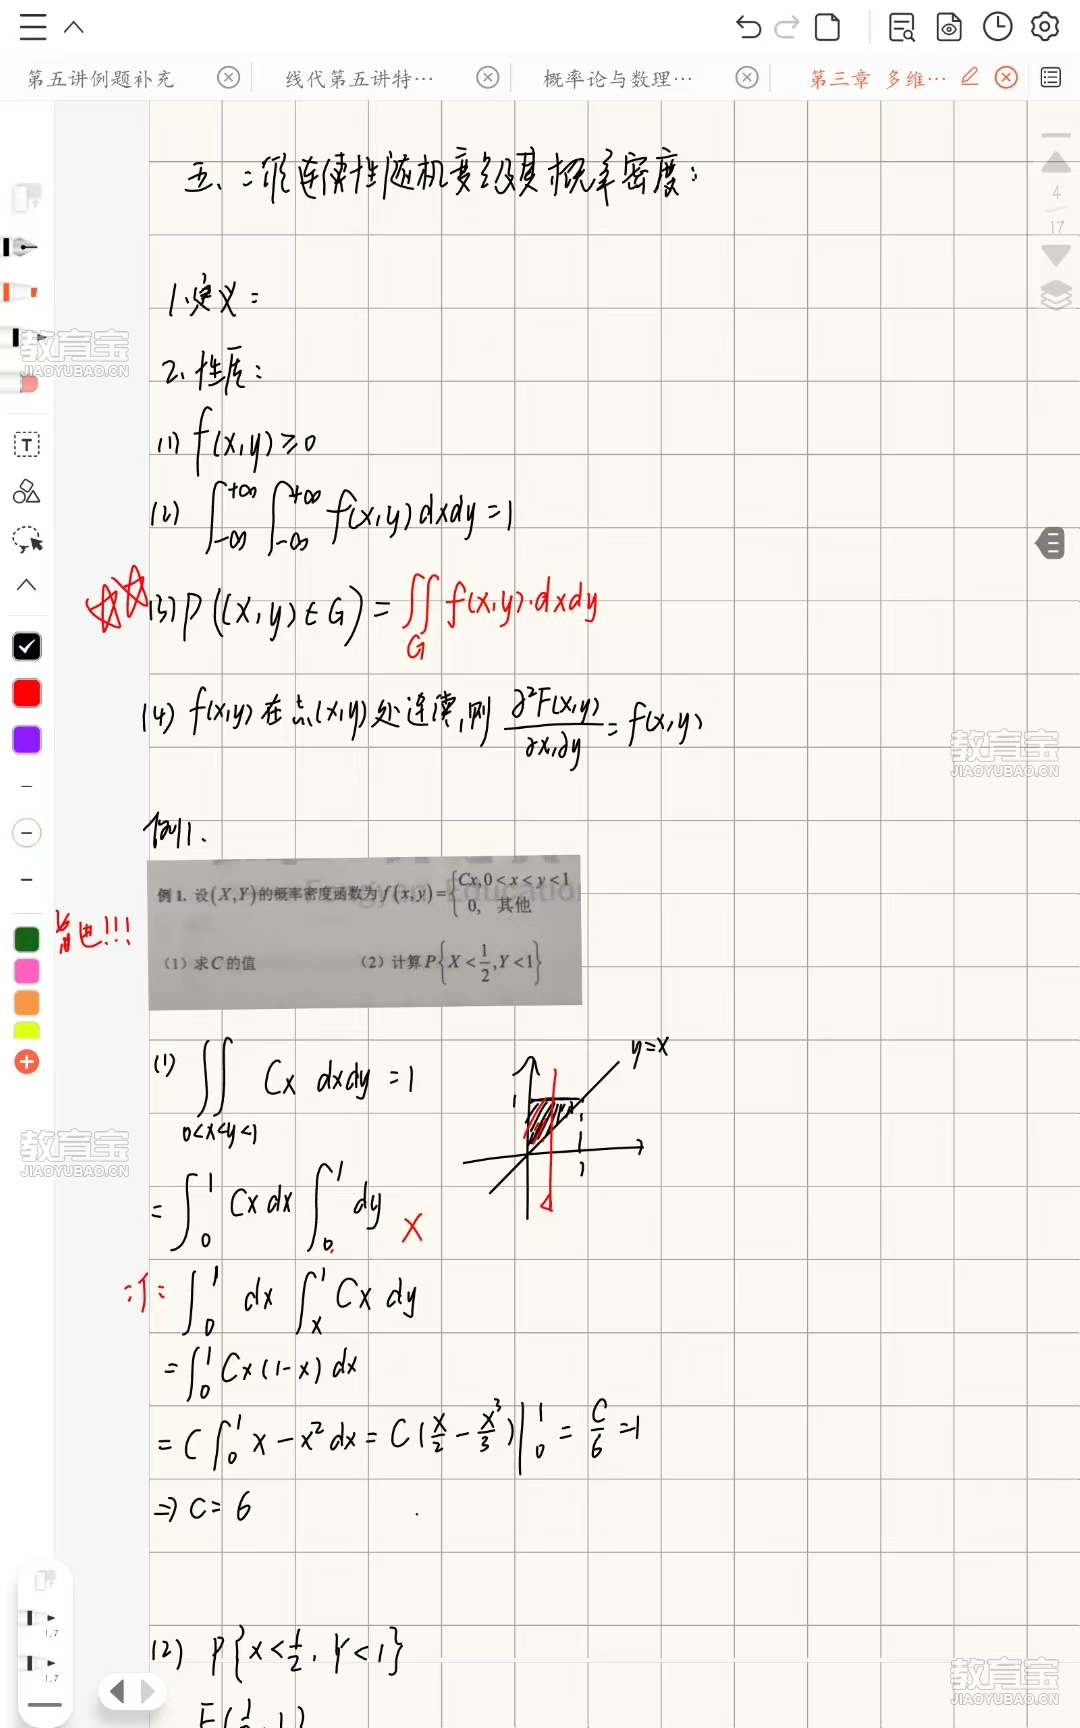 第五讲例题补充
线代第五讲特…
概率论与数理…
第三章 多维…
4
17
五、二维连续性随机变量及其概率密度:
1.定义:
2.性质:
(1) f(x,y)≥0
(2) ∫_{-∞}^{+∞} ∫_{-∞}^{+∞} f(x,y)dxdy=1
(3) P((X,Y)∈G)= ∬_G f(x,y)·dxdy
(4) f(x,y)在点(x,y)处连续,则 ∂²F(x,y)/∂x,∂y = f(x,y)
例1.
例1. 设(X,Y)的概率密度函数为f(x,y)={Cx,0<x<y<1
0, 其他
(1)求C的值 (2)计算P{X<1/2,Y<1}
!!!
(1) ∬_{0<x<y<1} Cx dxdy =1
y=x
1
1
= ∫_0^1 Cx dx ∫_0^1 dy ×
= ∫_0^1 dx ∫_x^1 Cx dy
= ∫_0^1 Cx(1-x) dx
= C∫_0^1 x-x² dx = C(x/2 - x³/3)|_0^1 = C/6 =1
⇒ C=6
(2) P{X<1/2, Y<1}
F(1/2, 1)
1.7
1.7
教育宝
JIAOYUBAO.CN
教育宝
JIAOYUBAO.CN
教育宝
JIAOYUBAO.CN
教育宝
JIAOYUBAO.CN